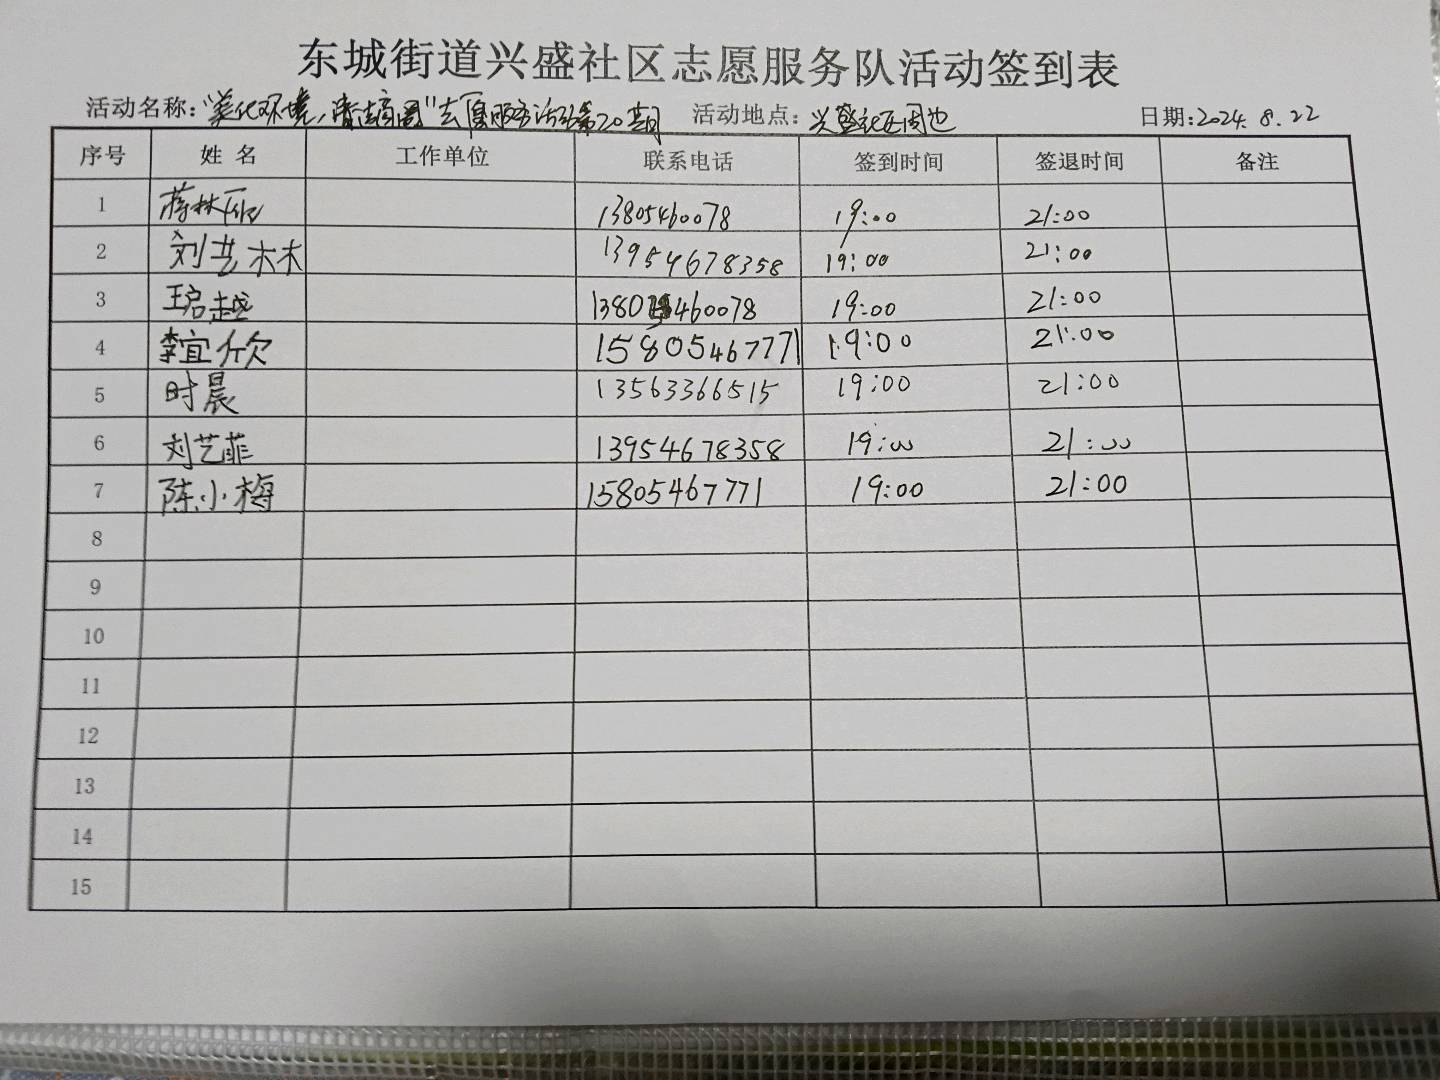 东城街道兴盛社区志愿服务队活动签到表
活动名称："美化环境，清洁家园"志愿服务活动第20期 活动地点：兴盛社区周边 日期：2024.8.22
序号 姓名 工作单位 联系电话 签到时间 签退时间 备注
1 蒋林 13805460078 19:00 21:00
2 刘艺林 13954678358 19:00 21:00
3 王启越 13805460078 19:00 21:00
4 李宜欣 15805467771 19:00 21:00
5 时晨 13563366515 19:00 21:00
6 刘艺菲 13954678358 19:00 21:00
7 陈小梅 15805467771 19:00 21:00
8
9
10
11
12
13
14
15